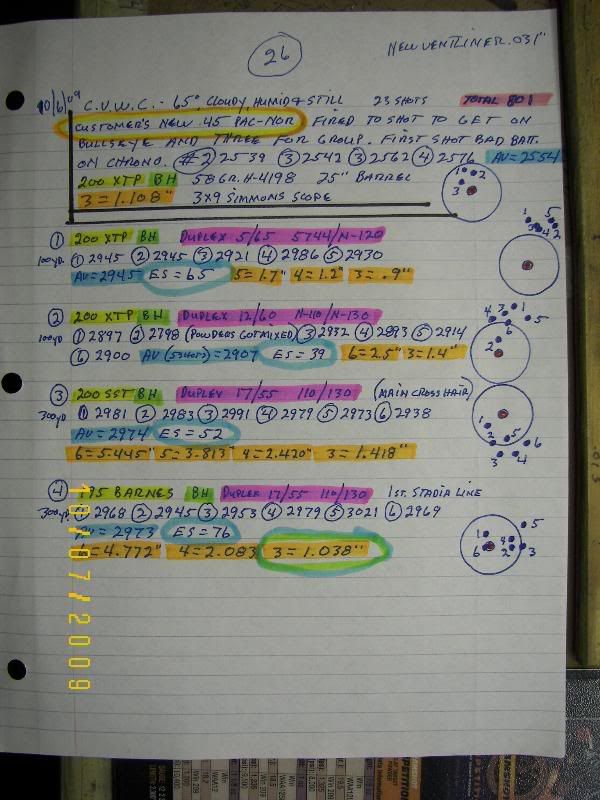 26
NEW VENTLINER .031"
10/6/09 C.V.W.C. - 65°, CLOUDY, HUMID & STILL 23 SHOTS TOTAL 801
CUSTOMER'S NEW .45 PAC-NOR FIRED TO SHOT TO GET ON
BULLSEYE AND THREE FOR GROUP. FIRST SHOT BAD BATT.
ON CHRONO. #2 2539 3 2542 3 2562 4 2576 AV=2554
200 XTP BH 58 GR. H-4198 25" BARREL
3 = 1.108" 3x9 SIMMONS SCOPE
1 2
3
1 200 XTP BH DUPLEX 5/65 5744/N-120
100 yd. 1 2945 2 2945 3 2921 4 2986 5 2930
AV=2945 ES=65 5=1.7" 4=1.2" 3=.9"
1 5
3 4 2
2 200 XTP BH DUPLEX 12/60 N-110/N-130
100 yd 1 2897 2 2798 (POWDERS GOT MIXED) 3 2932 4 2893 5 2914
6 2900 AV (5 SHOTS)=2907 ES=39 6=2.5" 3=1.4"
4 3 1 5
6
2
3 200 SST BH DUPLEX 17/55 110/130 (MAIN CROSS HAIR)
300 yd 1 2981 2 2983 3 2991 4 2979 5 2973 6 2938
AV=2974 ES=52
6=5.445" 5=3.813" 4=2.420" 3=1.418"
1
2 5 6
3 4
4 195 BARNES BH DUPLEX 17/55 110/130 1ST. STADIA LINE
300 yd. 1 2968 2 2945 3 2953 4 2979 5 3021 6 2969
AV=2973 ES=76
6=4.772" 4=2.083 3=1.038"
5
1 4
6 2 3
10/07/2009